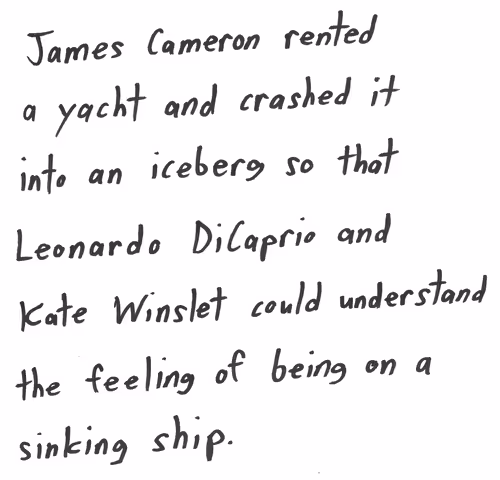 James Cameron rented
a yacht and crashed it
into an iceberg so that
Leonardo DiCaprio and
Kate Winslet could understand
the feeling of being on a
sinking ship.